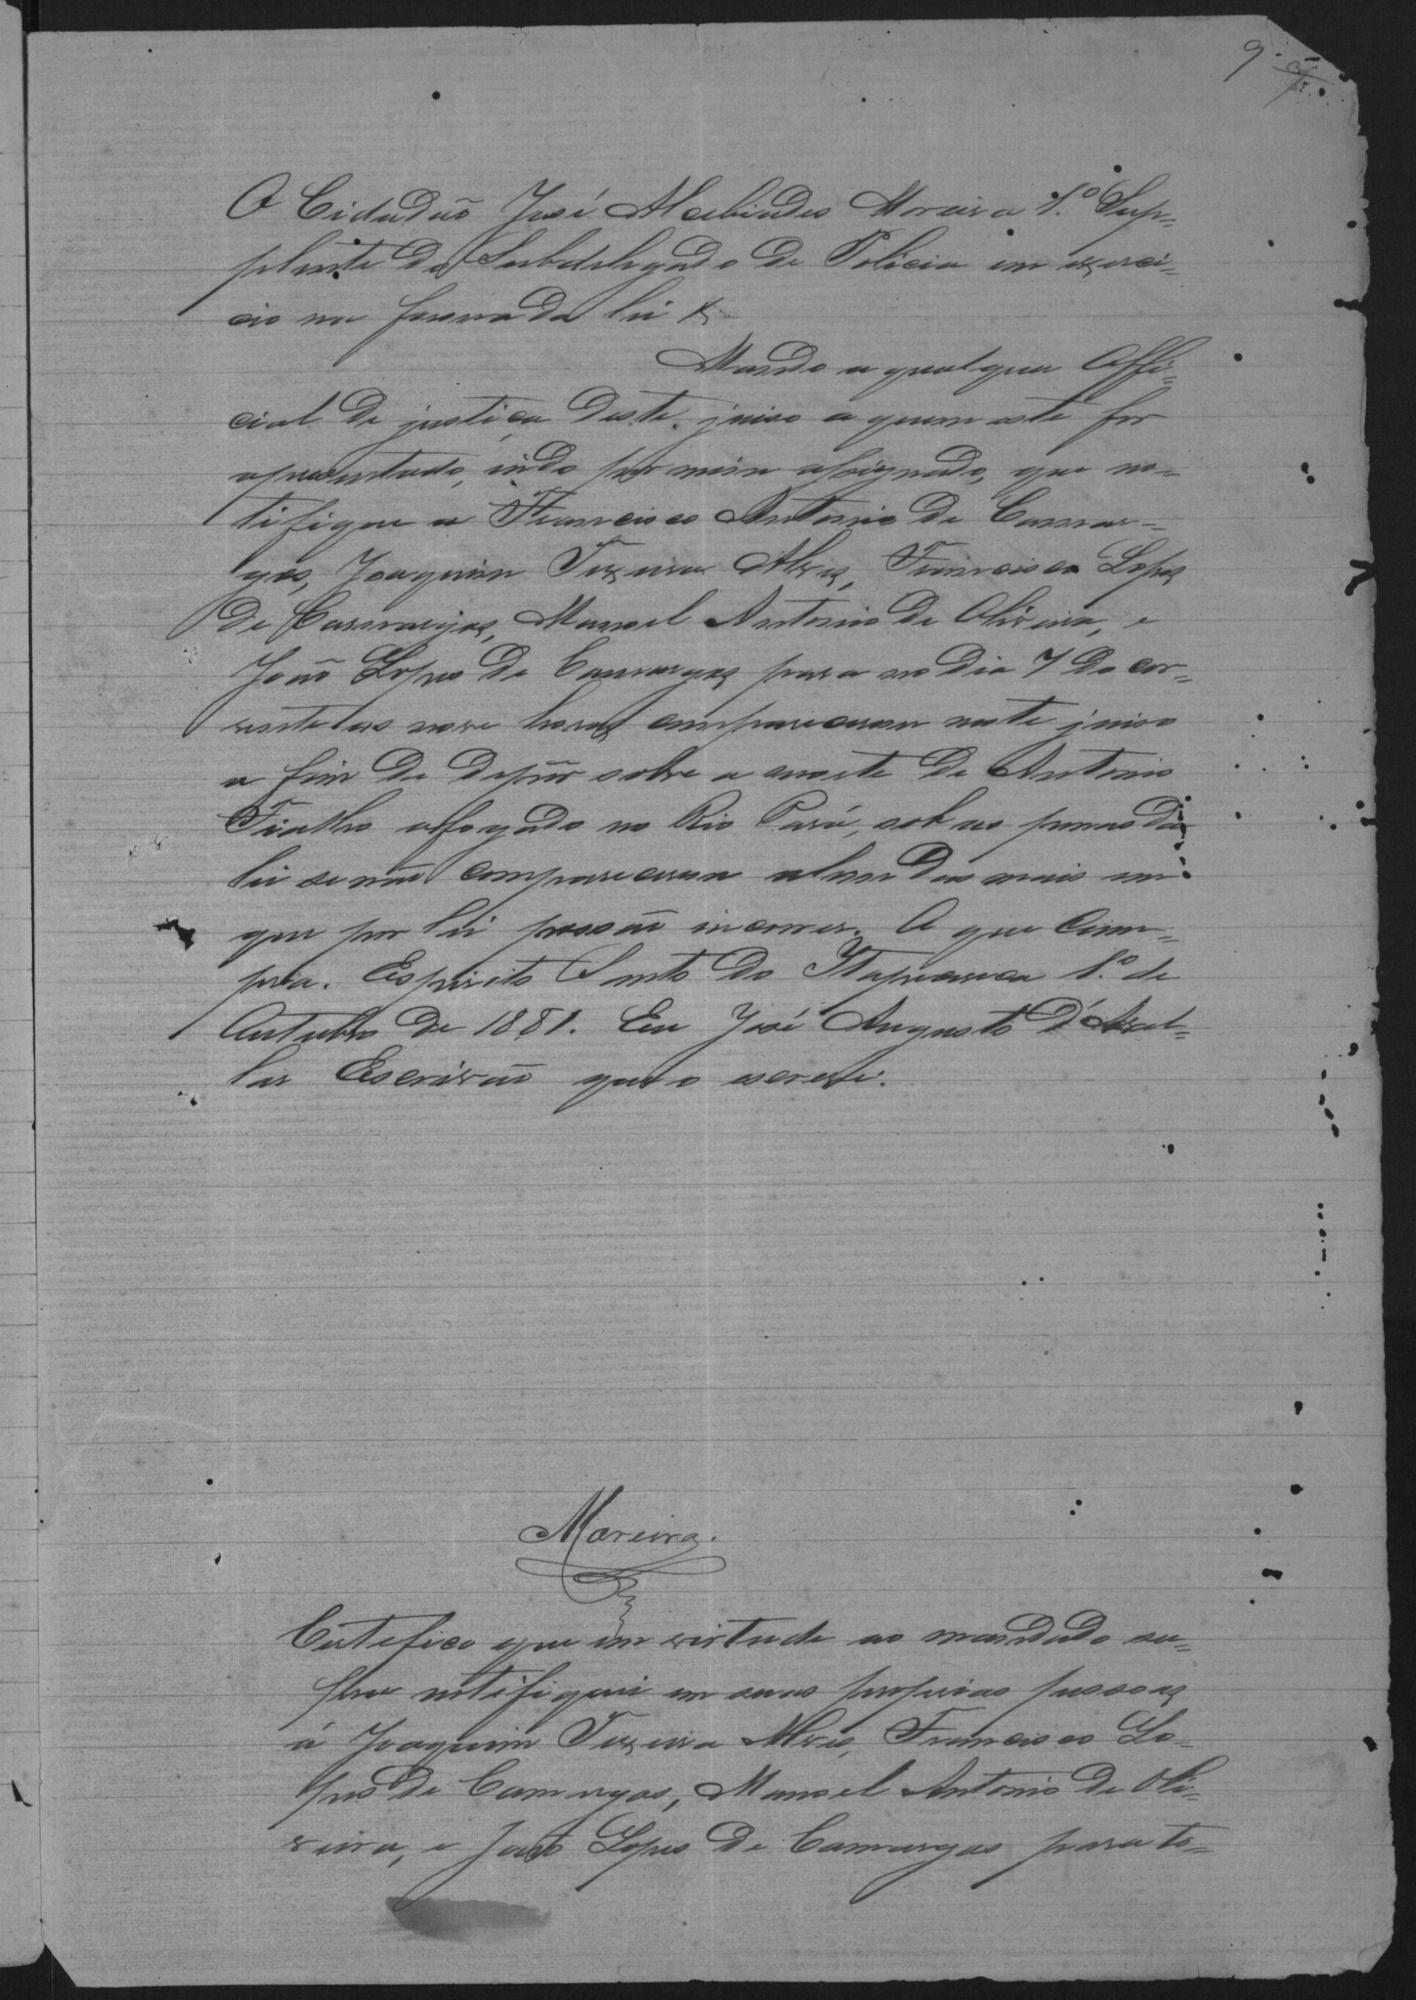 9
O Cidadão José Alcebiades Moreira 1.º Sup=
plente do Subdelegado de Policia em exerci=
cio na forma da lei &
Mando a qualquer Offi=
cial de justiça deste juiso a quem este for
apresentado, indo por mim assignado, que no=
tifique a Francisco Antonio de Camar=
gos, Joaquim Teixeira Alves, Francisco Lopes
de Camargos, Manoel Antonio de Oliveira, e
João Lopes de Camargos para no dia 7 do cor=
rente as nove horas comparecerem neste juiso
a fim de depôr sobre a morte de Antonio
Fialho afogado no Rio Pará, sob as penas da
lei se não comparecerem alem das mais em
que por lei possão incorrer. O que Cum=
pra. Espirito Santo do Itapecerica 1.º de
Outubro de 1881. Eu José Augusto
Escrivão que o escrevi.
Moreira.
Certefico que em virtude ao mandado su=
pra notifiquei em suas proprias pessoas
á Joaquim Teixeira Alves, Francisco Lo=
pes de Camargos, Manoel Antonio de Oli=
veira, e João Lopes de Camargos para to=